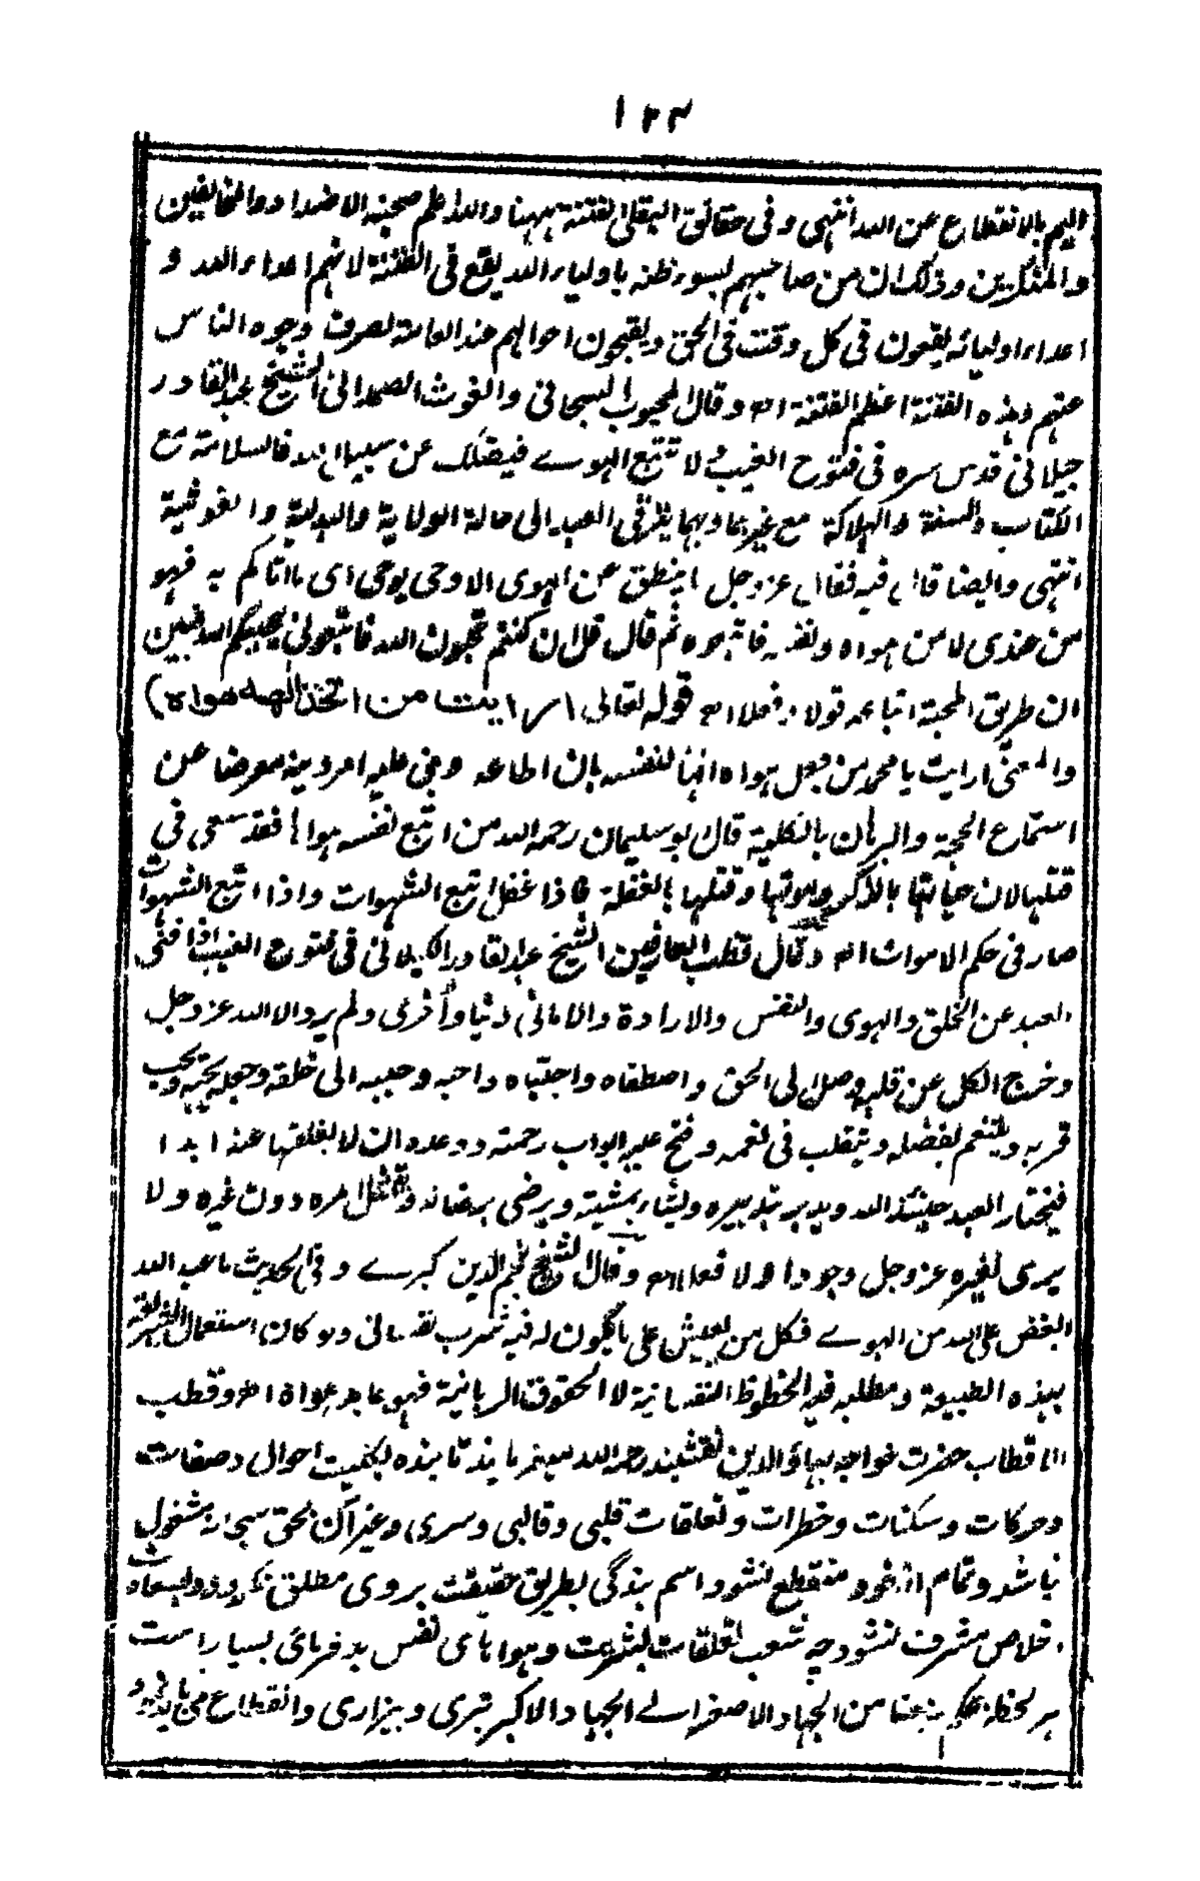 ١٢٣
اليهم بالانقطاع عن الله انتهى وفى حقائق البقلى الفتنة ههنا والله اعلم صحبة الاضداد والمخالفين
والمنكرين وذلك ان من صاحبهم بسوء ظنه باولياء الله يقع فى الفتنة لانهم اعداء الله و
اعداء اوليائه يقعون فى كل وقت فى الحق ويقبحون احوالهم عند العامة لصرف وجوه الناس
عنهم وهذه الفتنة اعظم الفتنة اه وقال المحبوب السبحانى والغوث الصمدانى الشيخ عبد القادر
جيلانى قدس سره فى فتوح الغيب لا تتبع الهوے فيضلك عن سبيل الله فالسلامة مع
الكتاب والسنة والهلاكة مع غيرهما وبهما يترقى العبد الى حالة الولاية والبدلية والغوثية
انتهى وايضا قال فيه فقال عز وجل ما ينطق عن الهوى الا وحى يوحى اى ما اتاكم به فهو
من عندى لا من هواه ونفسه فاتبعوه ثم قال قل ان كنتم تحبون الله فاتبعونى يحببكم الله فبين
ان طريق المحبة اتباعه قولا وفعلا اه قوله تعالى (ارايت من اتخذ الهه هواه)
والمعنى ارايت يا محمد من جعل هواه الها لنفسه بان اطاعه وبنى عليه امر دينه معرضا عن
استماع الحجة والبرهان بالكلية قال بو سليمان رحمه الله من اتبع نفسه هواها فقد سعى فى
قتلها لان حياتها بالذكر وموتها وقتلها بالغفلة فاذا غفل اتبع الشهوات واذا اتبع الشهوات
صار فى حكم الاموات اه وقال قطب العارفين الشيخ عبد القادر الكيلانى فى فتوح الغيب اذا فنى
العبد عن الخلق والهوى والنفس والارادة والامانى دنيا وأخرى ولم يرد الا الله عز وجل
وخرج الكل عن قلبه وصل الى الحق واصطفاه واجتباه واحبه وحببه الى خلقه وجعله يحبه ويحب
قربه ويتنعم بفضله ويتقلب فى نعمه وفتح عليه ابواب رحمته ووعده ان لا يغلقها عنه ابدا
فيختار العبد حينئذ الله ويدبر بتدبيره ويشاء بمشيته ويرضى برضائه ويمتثل امره دون غيره ولا
يرى لغيره عز وجل وجودا ولا فعلا اه وقال الشيخ نجم الدين كبرے وفى الحديث ما عبد اله
ابغض على الله من الهوے فكل من يعيش على ما يكون له فيه شرب نفسانى ولو كان استعمال الشريعة
بهذه الطبيعة ومطلبه فيه الحظوظ النفسانية لا الحقوق الربانية فهو عابد هواه اه وقطب
الاقطاب حضرت خواجه بهاؤ الدين نقشبند رحمه الله ميفرمايند تا بنده بكفيت احوال وصفات
وحركات وسكنات وخطرات وتعلقات قلبى وقالبى وسرى وغير آن بحق سبحانه مشغول
نباشد وتمام از خود منقطع نشود اسم بندگى بطريق حقيقت بروى مطلق نگردد وبسعادت
اخلاص مشرف نشود چه شعب تعلقات بشريت وهواهاى نفس بد فرمائى بسيار است
هر لحظه بحكم رجعنا من الجهاد الاصغر الے الجهاد الاكبر تبرى وبيزارى وانقطاع مى بايد و